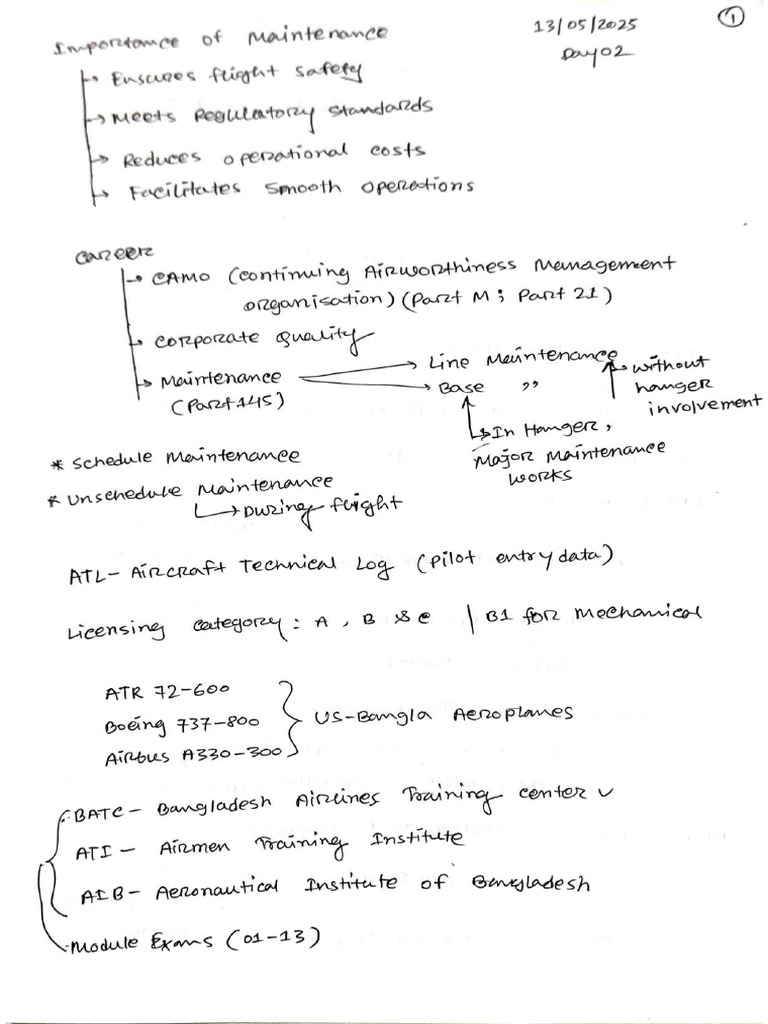 Importance of Maintenance
13/05/2025
Day 02
1
→ Ensures flight safety
→ Meets Regulatory Standards
→ Reduces operational costs
→ Facilitates smooth operations
Career
→ CAMO (Continuing Airworthiness Management
organisation) (Part M ; Part 21)
→ Corporate Quality
→ Maintenance → Line Maintenance
(Part 145) → Base ,,
→ without
hanger
involvement
→ In Hanger,
Major Maintenance
works
* Schedule Maintenance
* Unschedule Maintenance
→ During flight
ATL - Aircraft Technical Log (Pilot entry data)
Licensing category : A , B & C | B1 for Mechanical
ATR 72-600
Boeing 737-800
Airbus A330-300
US-Bangla Aeroplanes
BATC - Bangladesh Airlines Training center ✓
ATI - Airmen Training Institute
AIB - Aeronautical Institute of Bangladesh
Module Exams (01-13)